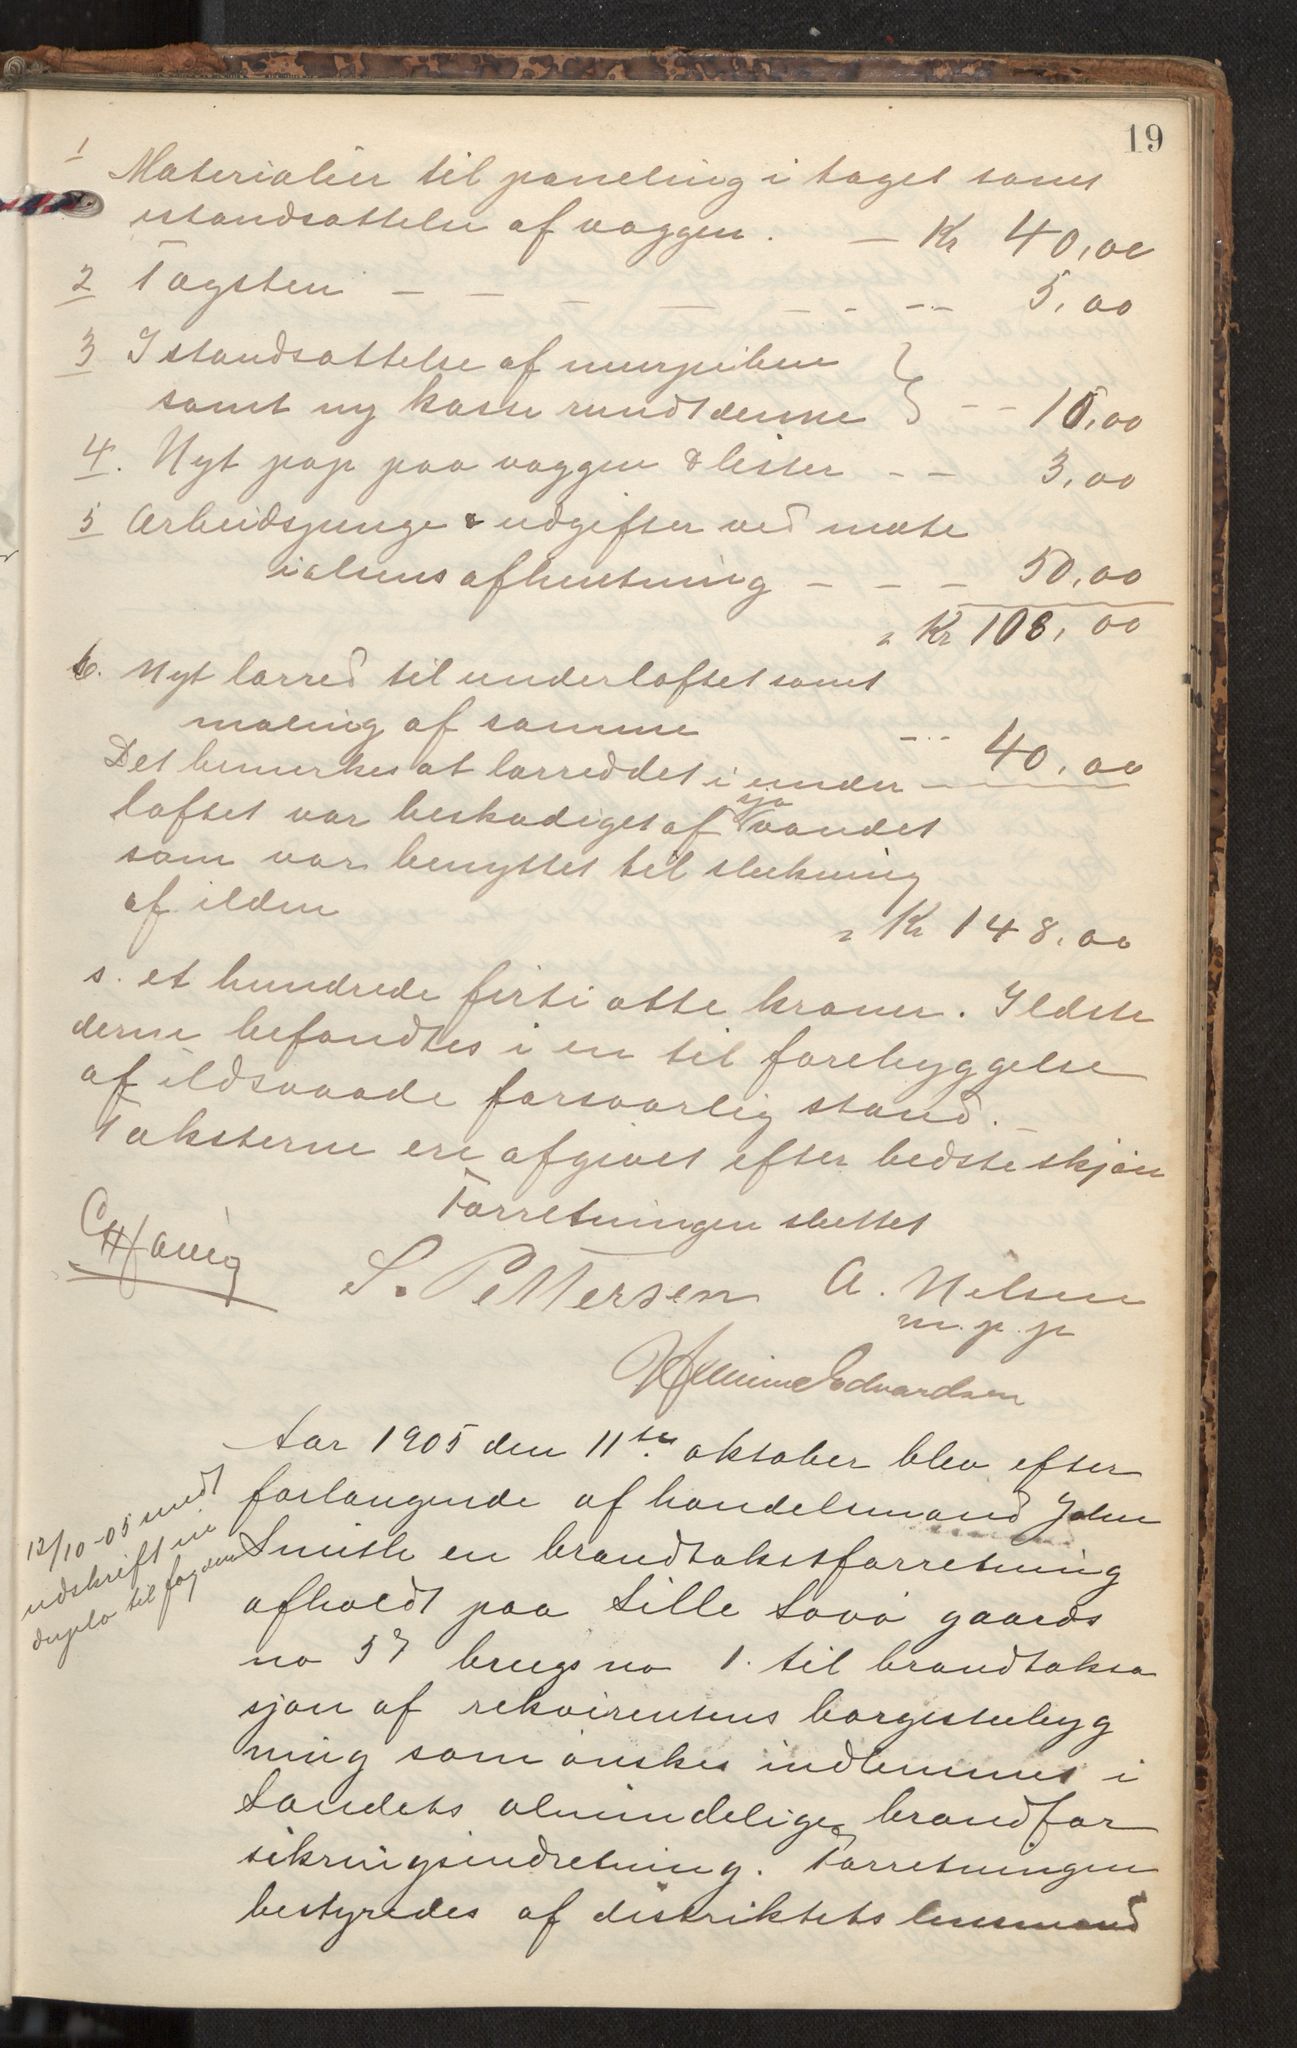 19
1 Materialier til paneling i taget samt
istandsættelse af væggen. — Kr 40,00
2 Tagsten — — — — — — — 5,00
3 Istandsættelse af murpiben
samt ny kasse rundt denne } — — 10,00
4. Nyt pap paa væggen & lister — — 3,00
5 Arbeidspenge & udgifter ved mate
ialiens afhentning — — — 50,00
= Kr 108,00
6. Nyt lærred til underloftet samt
maling af samme --- 40,00
Det bemerkes at lærreddet i under
loftet var beskadiget af sjøvandet
som var benyttet til slukning
af ilden
= Kr 148,00
s. et hundrede firti otte kroner. Ildste
derne befandtes i en til forebyggelse
af ildsvaade forsvarlig stand. —
Taksterne ere afgivet efter bedste skjøn
Forretningen sluttet
S. Pettersen A. Nilsen
m. p. p
Edvardsen
Aar 1905 den 11te oktober blev efter
forlangende af handelsmand John
Smith en brandtakstforretning
12/10-05 sendt
udskrift in
duplo til fogden
afholdt paa Lille Søvø gaards
no 57 brugs no 1. til brandtaksa
sjon af rekvirentens borgestuebyg
ning som ønskes indlemmet i
Landets almindelige brandfor
sikringsindretning. Forretningen
bestyredes af distriktets lensmand